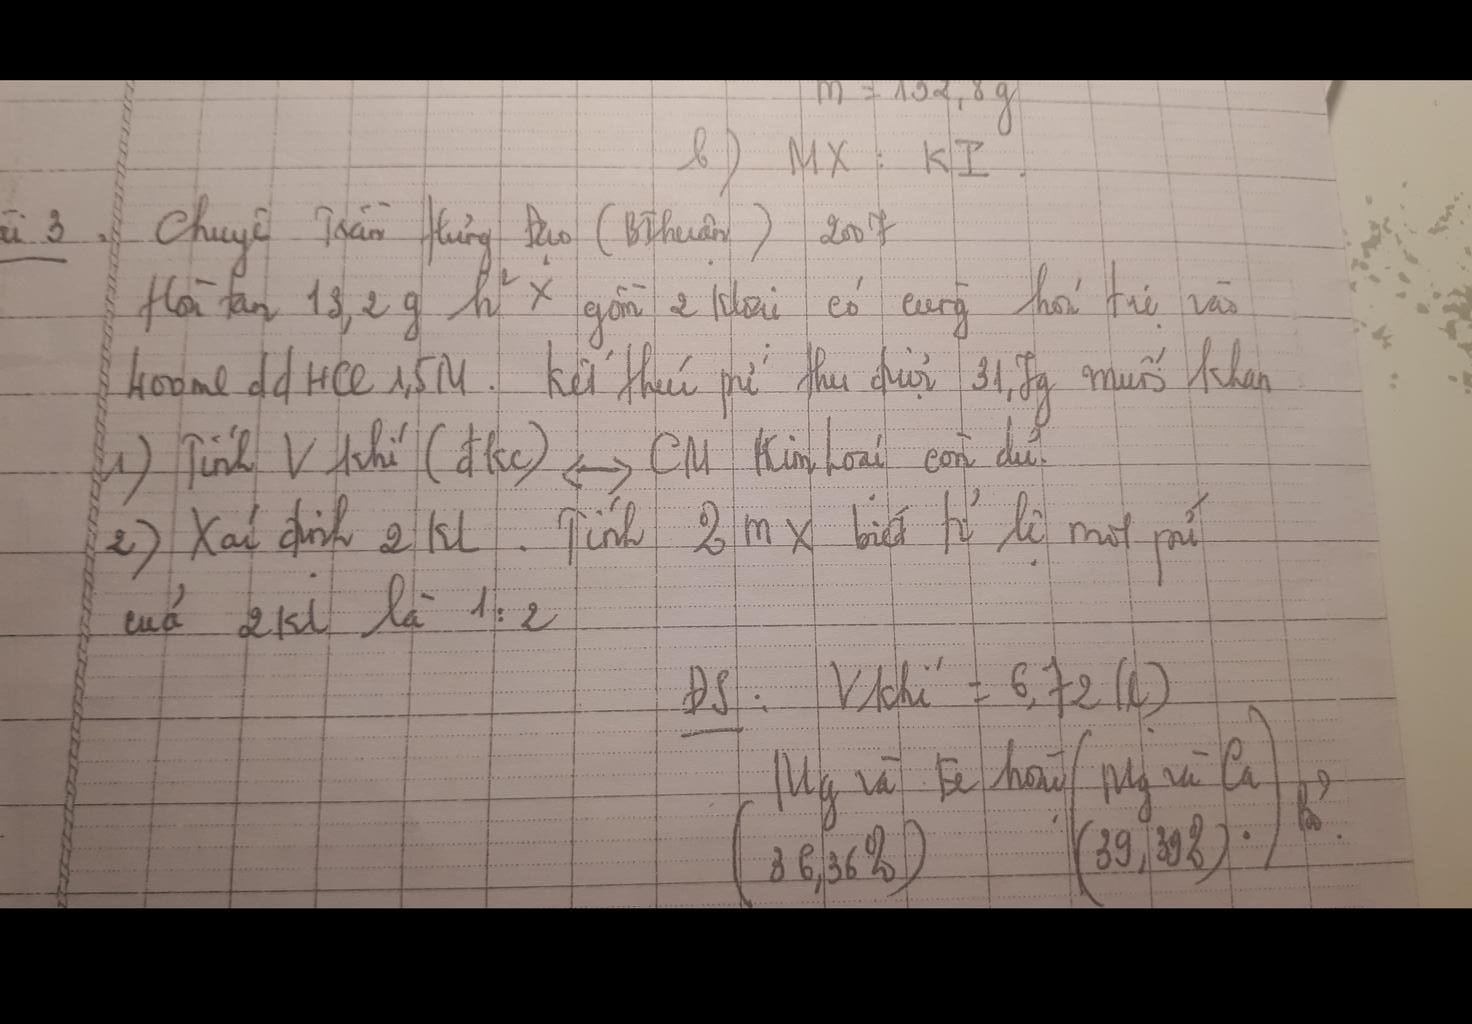 m = 192,8g
b) MX : KI
3. Chuyê Trần Hưng Đạo (BThuận) 2007
Hoà tan 13,2 g h² X gồm 2 kloại có cùng hoá trị vào
400ml dd HCl 1,5M. Kết thúc pứ thu được 31,7g muối khan
1) Tính V khí (đkc) ⟷ CM Kim loại còn dư.
2) Xác định 2 KL. Tính % m X biết tỉ lệ mol pứ
cuả 2KL là 1:2
ĐS: V khí = 6,72 (l)
Mg và Fe hoặc (Mg và Ca)
(36,36%) (39,39%)